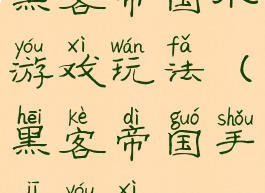 黑客帝国
yóu xì wán fǎ
游戏玩法（
hēi kè dì guó shǒu
黑客帝国手
jī yóu xì